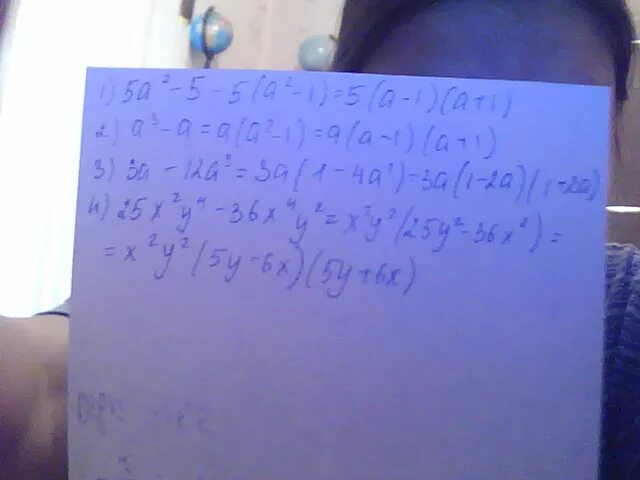 1) 5a² - 5 - 5(a² - 1) = 5(a - 1)(a + 1)
2) a³ - a = a(a² - 1) = a(a - 1)(a + 1)
3) 3a - 12a³ = 3a(1 - 4a²) - 3a(1 - 2a)(1 + 2a)
4) 25x²y⁴ - 36x⁴y² = x²y²(25y² - 36x²) =
= x²y²(5y - 6x)(5y + 6x)